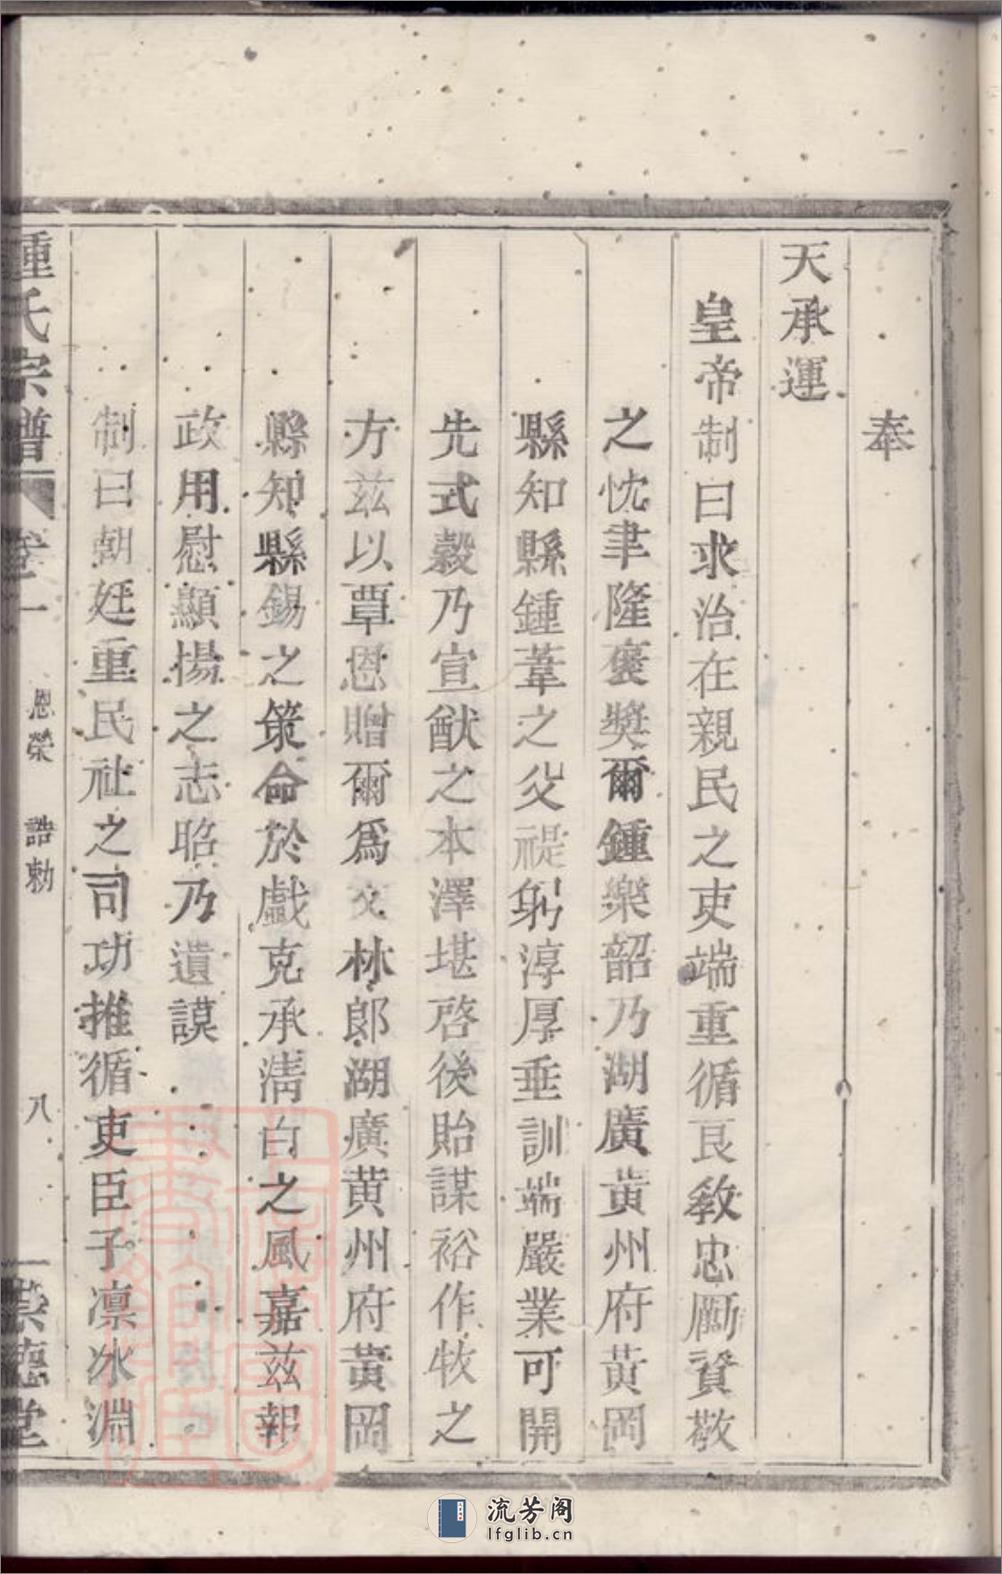 奉
天承運
皇帝制曰求治在親民之吏端重循良教忠勵資敬
之忱聿隆褒獎爾鍾樂韶乃湖廣黃州府黃岡
縣知縣鍾葦之父禔躬淳厚垂訓端嚴業可開
先式穀乃宣猷之本澤堪啓後貽謀裕作牧之
方茲以覃恩贈爾爲文林郎湖廣黃州府黃岡
縣知縣錫之策命於戲克承淸白之風嘉茲報
政用慰顯揚之志昭乃遺謨
制曰朝廷重民社之司功推循吏臣子凛冰淵
鍾氏宗譜 卷之一 恩榮 誥勅 八 德堂
流芳阁
lfglib.cn